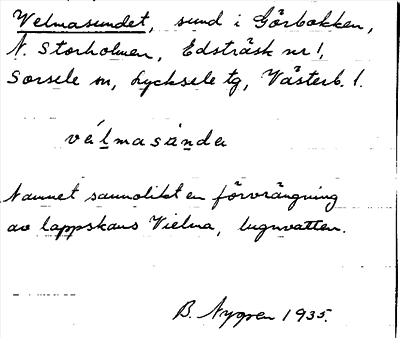 Velmasundet, sund i Görbokken,
N. Storholmen, Edsträsk nr 1,
Sorsele sn, Lycksele tg, Västerb. l.
vèlmasúnde
Namnet sannolikt en förvrängning
av lappskans Vielma, lugnvatten.
B. Nygren 1935.